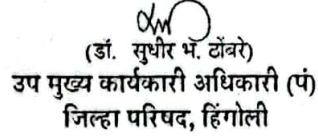 (डॉ. सुधीर भ. ठोंबरे)
उप मुख्य कार्यकारी अधिकारी (पं)
जिल्हा परिषद, हिंगोली